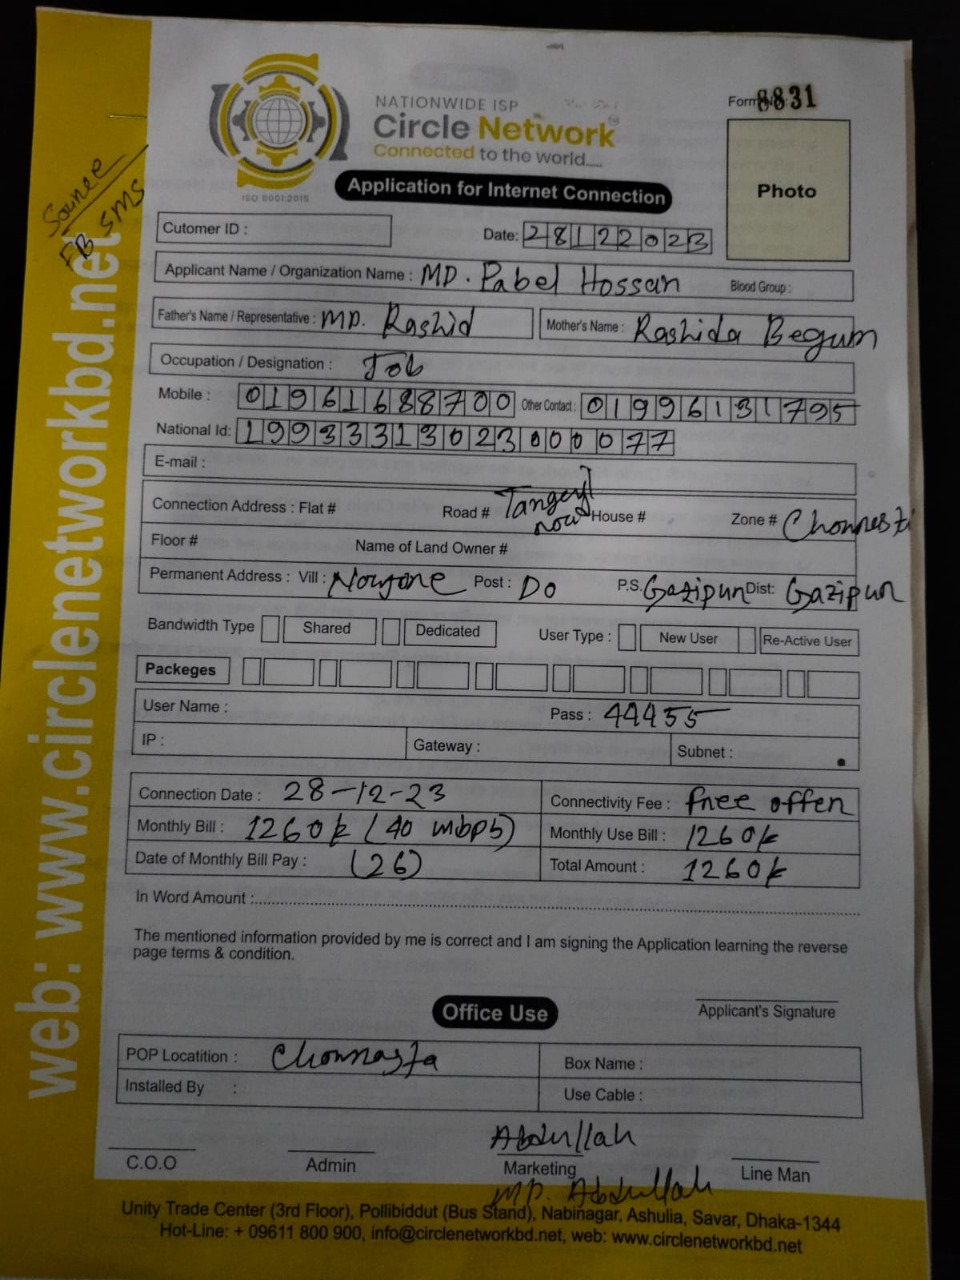 NATIONWIDE ISP
Circle Network
Connected to the world.....
ISO 9001:2015
Form No. 8831
Photo
Application for Internet Connection
Sounce
FB SMS
web: www.circlenetworkbd.net
Cutomer ID :
Date: 28122023
Applicant Name / Organization Name : MD. Pabel Hossan Blood Group :
Father's Name / Representative : MD. Rashid Mother's Name : Rashida Begum
Occupation / Designation : Job
Mobile : 01961688700 Other Contact : 01996131795
National Id: 19933313023000077
E-mail :
Connection Address : Flat # Road # House # Zone #
Floor # Name of Land Owner #
Permanent Address : Vill : Post : DO P.S. Gazipun Dist: Gazipun
Bandwidth Type Shared Dedicated User Type : New User Re-Active User
Packeges
User Name : Pass : 44455
IP : Gateway : Subnet :
Connection Date : 28-12-23 Connectivity Fee : free offen
Monthly Bill : 1260k (40 mbpb) Monthly Use Bill : 1260k
Date of Monthly Bill Pay : (26) Total Amount : 1260k
In Word Amount :
The mentioned information provided by me is correct and I am signing the Application learning the reverse
page terms & condition.
Applicant's Signature
Office Use
POP Locatition : Chonnasta Box Name :
Installed By : Use Cable :
Abdullah
C.O.O Admin Marketing Line Man
MD. Abdullah
Unity Trade Center (3rd Floor), Pollibiddut (Bus Stand), Nabinagar, Ashulia, Savar, Dhaka-1344
Hot-Line: + 09611 800 900, info@circlenetworkbd.net, web: www.circlenetworkbd.net